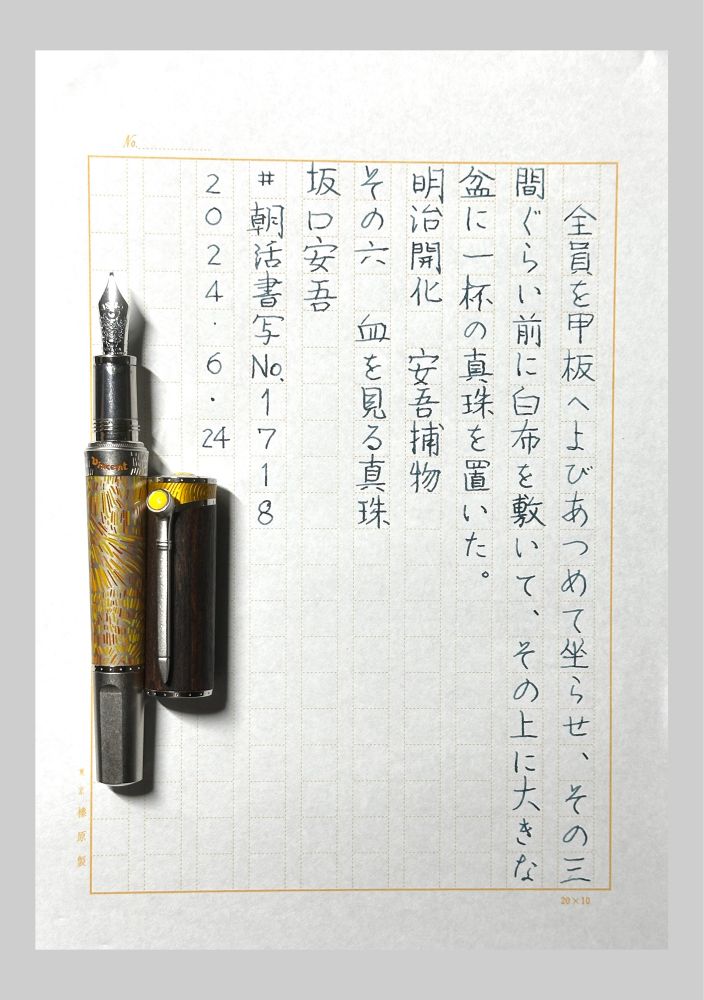 No.
全員を甲板へよびあつめて坐らせ、その三
間ぐらい前に白布を敷いて、その上に大きな
盆に一杯の真珠を置いた。
明治開化　安吾捕物
その六　血を見る真珠
坂口安吾
#朝活書写No.1718
2024.6.24
Vincent
東京榛原製
20×10